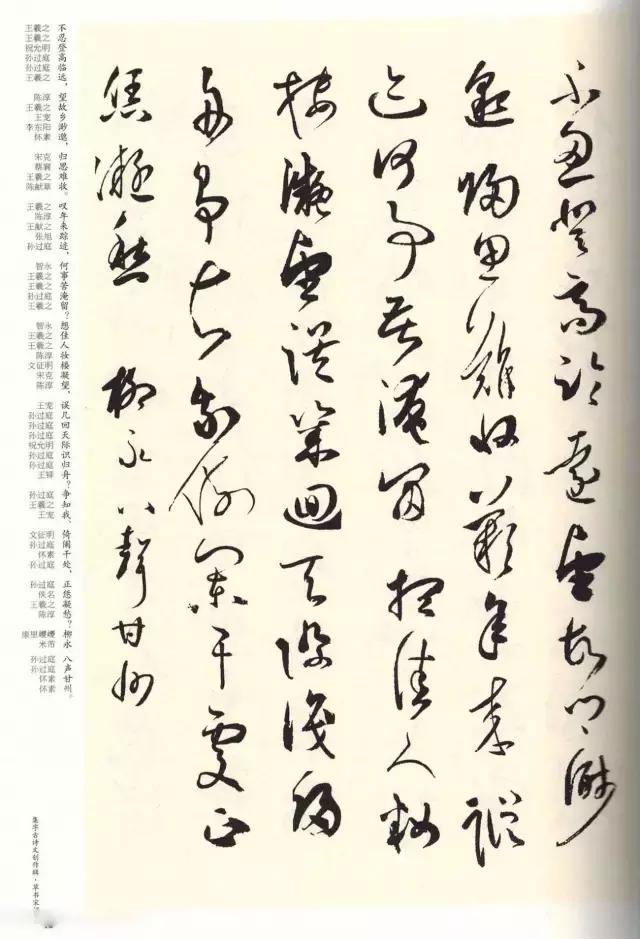 不忍登高臨遠望故鄉渺
邈歸思難收歎年來蹤
迹何事苦淹留想佳人妝
樓凝望誤幾迴天際識歸
舟爭知我倚闌干處正
恁凝愁 柳永八聲甘州
王羲之 不
王羲之 忍
祝允明 登
孙过庭 高
孙过庭 临
王羲之 远，
陈淳 望
王羲之 故
王宠 乡
李东阳 渺
怀素 邈，
宋克 归
蔡襄 思
王羲之 难
陈献章 收。
王羲之 叹
陈淳 年
王献之 来
张旭 踪
孙过庭 迹，
智永 何
王羲之 事
王羲之 苦
孙过庭 淹
王羲之 留？
智永 想
王羲之 佳
王羲之 人
陈淳 妆
文征明 楼
宋克 凝
陈淳 望，
王宠 误
孙过庭 几
孙过庭 回
孙过庭 天
祝允明 际
孙过庭 识
孙过庭 归
王铎 舟？
孙过庭 争
王羲之 知
王宠 我，
文征明 倚
孙过庭 阑
怀素 干
孙过庭 处，
孙过庭 正
佚名 恁
王羲之 凝
陈淳 愁？
康里巎巎 柳
米芾 永
孙过庭 八
孙过庭 声
怀素 甘
怀素 州。
集字古诗文创作辑·草书宋